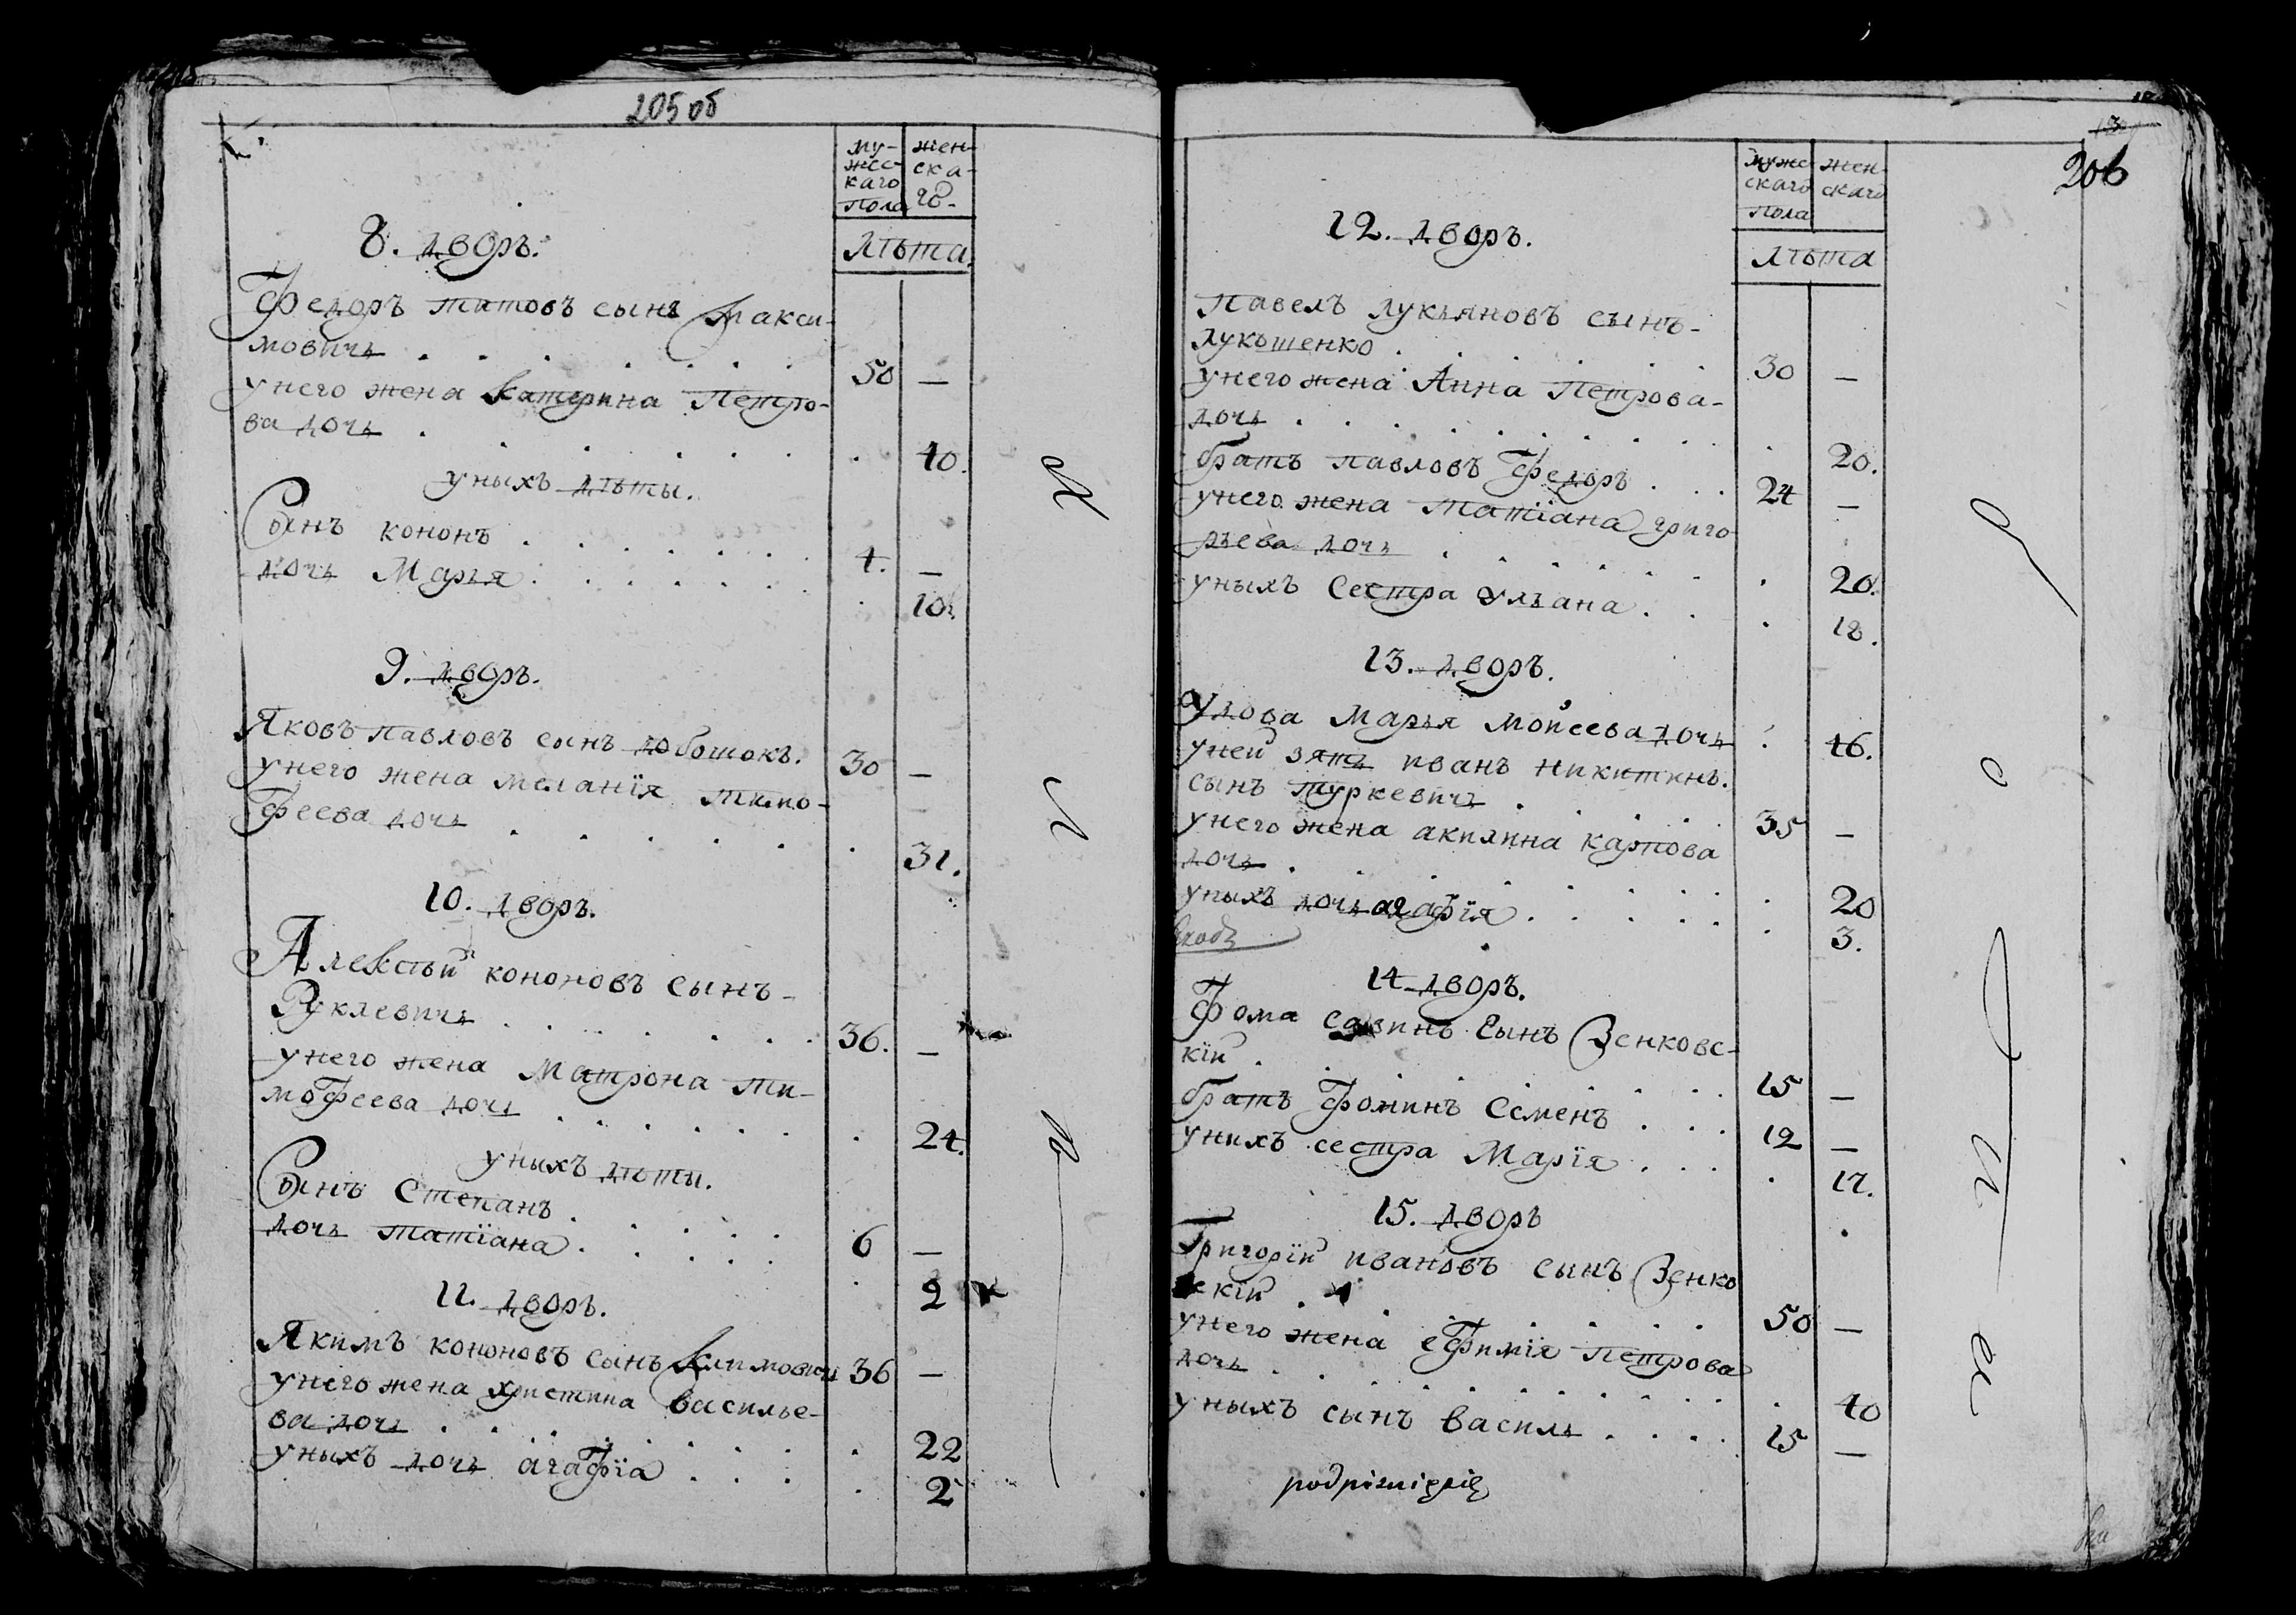 205 об
му-
жес-
каго
пола
жен-
ска-
го.
Лѣта.
8. дворъ.
Федоръ титовъ сынъ Макси-
мовичь . . . . . . 50 —
унего жена катерина Петро-
ва дочь . . . . . . 40.
уныхъ дѣты.
Сынъ кононъ . . . . . . 4. —
дочь Марья . . . . . . 10.
9. дворъ.
Яковъ павловъ сынъ добошокъ. 30 —
унего жена меланїя тимо-
феева дочь . . . . . . 31.
10. дворъ.
Алексѣй кононовъ сынъ-
Руклевичь . . . . . . 36. —
унего жена Матрона ти-
мофеева дочь . . . . . . 24.
уныхъ дѣты.
Сынъ Степанъ . . . . . 6 —
дочь татїана . . . . . 2
11. дворъ.
Якимъ кононовъ сынъ Климовичь 36 —
унего жена христина василье-
ва дочь . . . . . . 22
уныхъ дочь агафїа . . . 2
206
муже
скаго
пола
жен-
скаго
Лѣта
12. дворъ.
Павелъ лукьяновъ сынъ-
лукъшенко . . . . . . 30 —
унего жена Анна Петрова-
дочь . . . . . . 20.
братъ павловъ Федоръ . . . 24 —
унего жена татїана григо
рьева дочь . . . . . . 20.
уныхъ Сестра Ульана . . . 18.
13. дворъ.
Удова Марья Мойсеева дочь . 46.
уней зять иванъ никитинъ.
сынъ туркевичь . . . . . 35 —
унего жена акилина карпова
дочь . . . . . . 20
уныхъ дочь агафїя . . . . . 3.
14 дворъ.
Фома савинъ Сынъ Зенковс-
кїй . . . . . . 15 —
братъ Фоминъ Семенъ . . . 12 —
унихъ сестра Марїя . . . 17.
15. дворъ
Григорїй ивановъ сынъ Зенко
вскїй . . . . . . 50 —
унего жена ефимїя Петрова
дочь . . . . . . 40
уныхъ сынъ василь . . . . 15 —